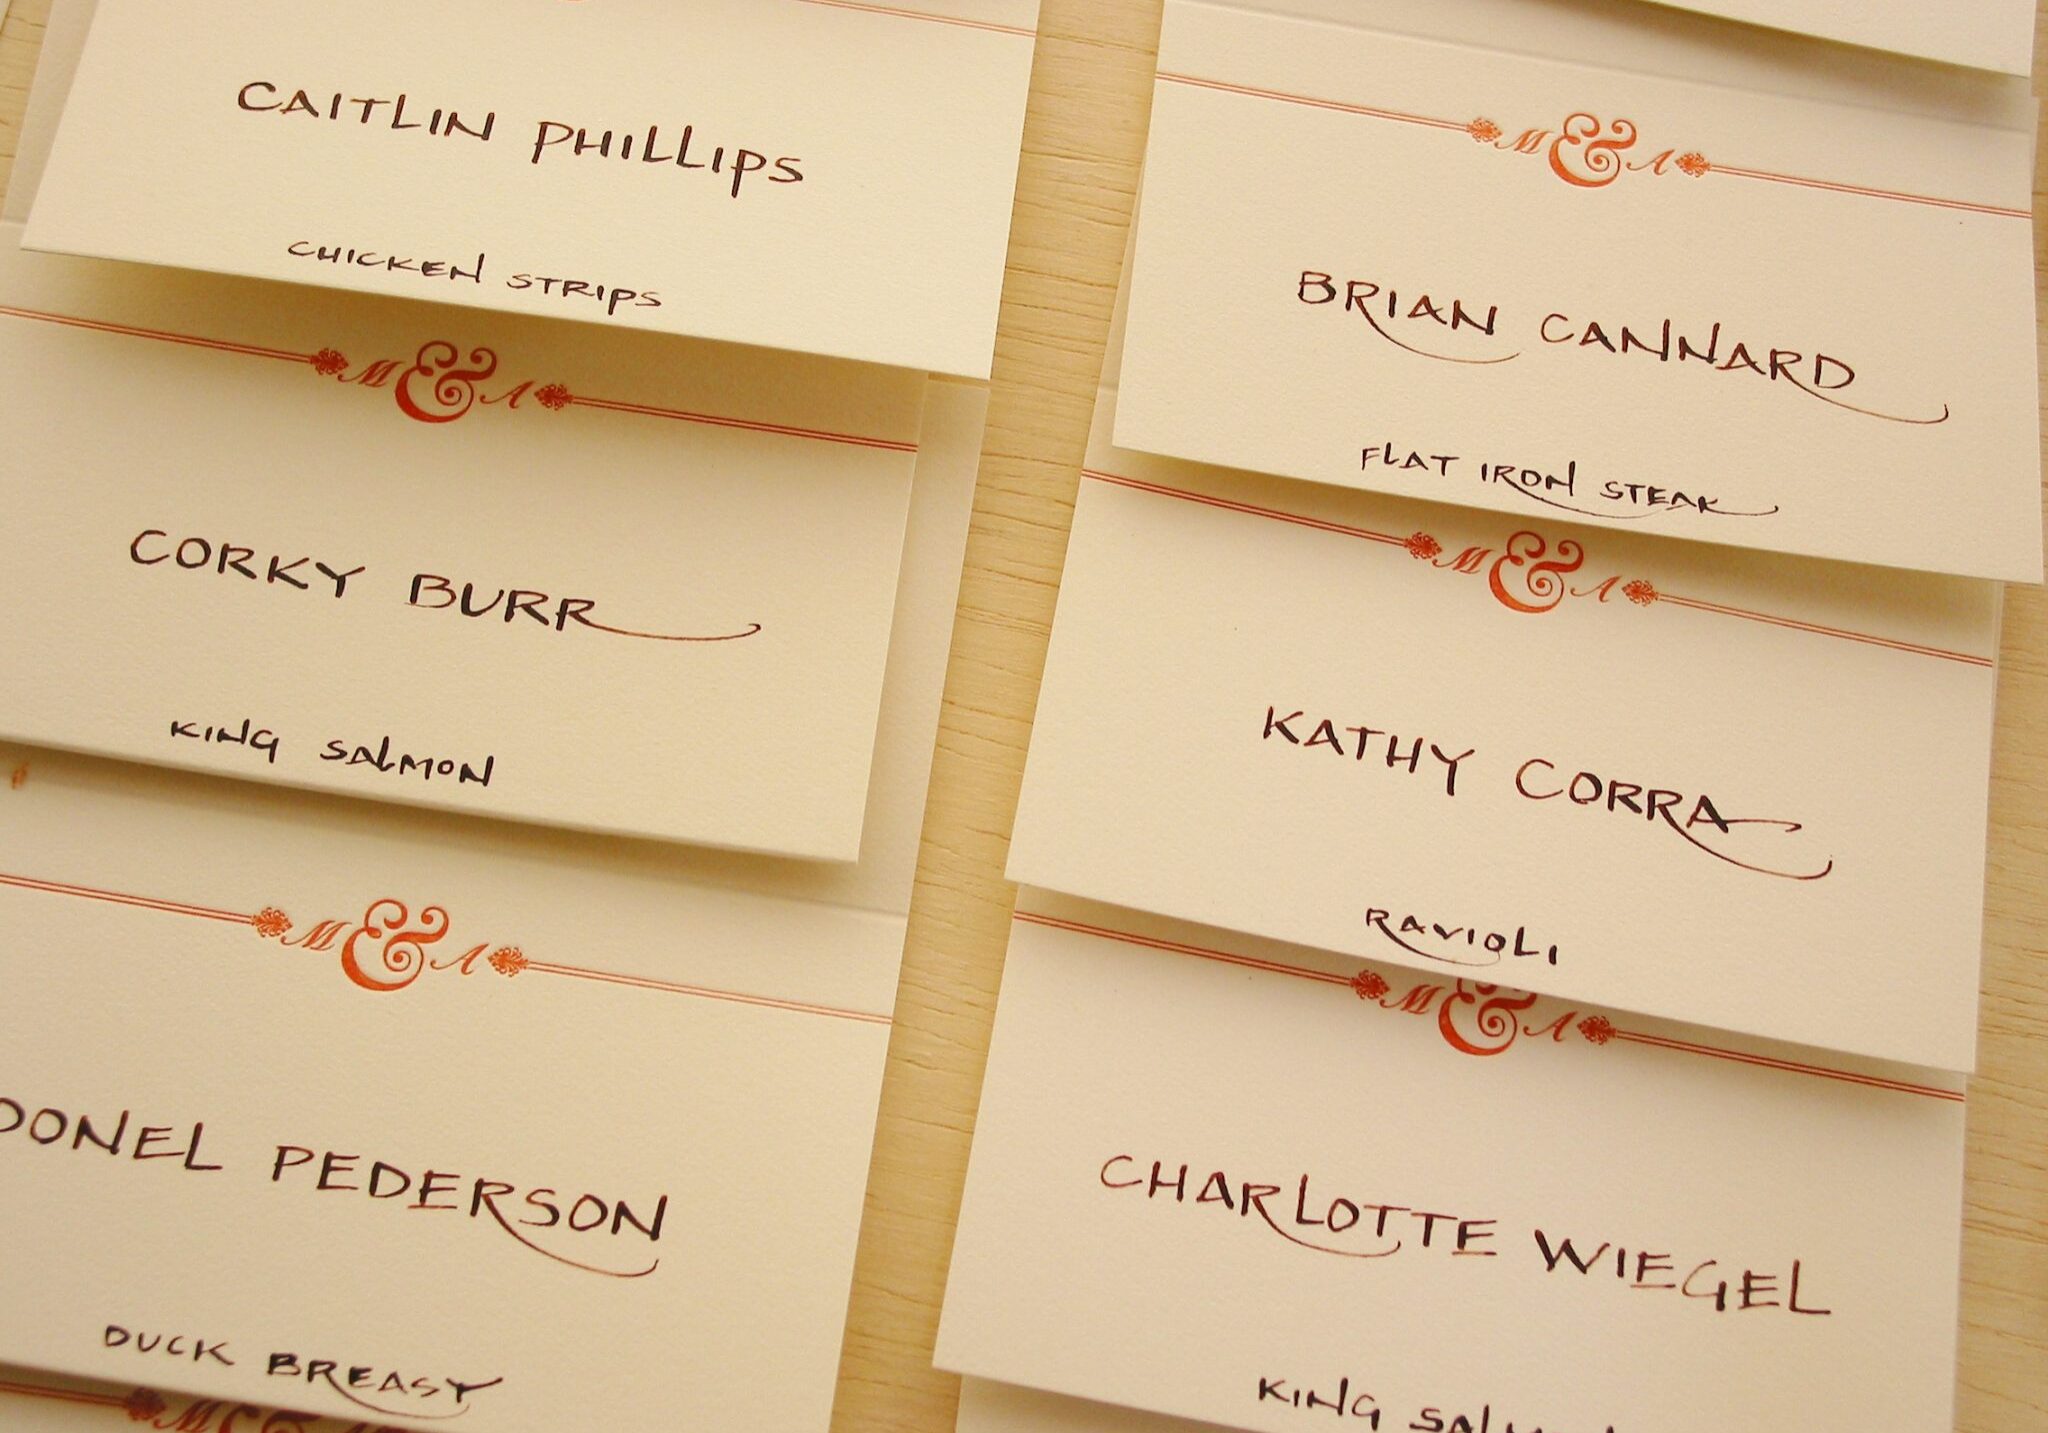 CAITLIN PHILLIPS
CHICKEN STRIPS
M & A
CORKY BURR
KING SALMON
M & A
DONEL PEDERSON
DUCK BREAST
M &
M & A
BRIAN CANNARD
FLAT IRON STEAK
M & A
KATHY CORRA
RAVIOLI
M & A
CHARLOTTE WIEGEL
KING SALMON